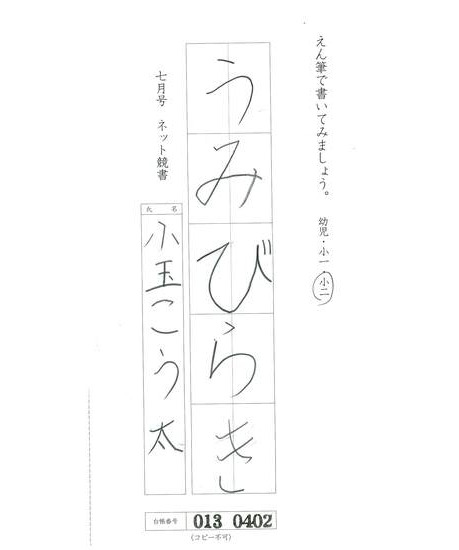 えん筆で書いてみましょう。
幼児・小一・小二
うみびらき
七月号 ネット競書
氏名
小玉こう太
台帳番号 013 0402
(コピー不可)